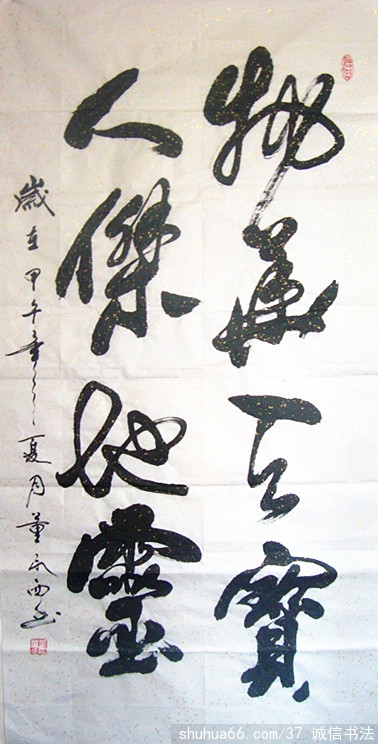 物華天寶
人傑地靈
歲在甲午年夏月董永西书
shuhua66.com/37 诚信书法